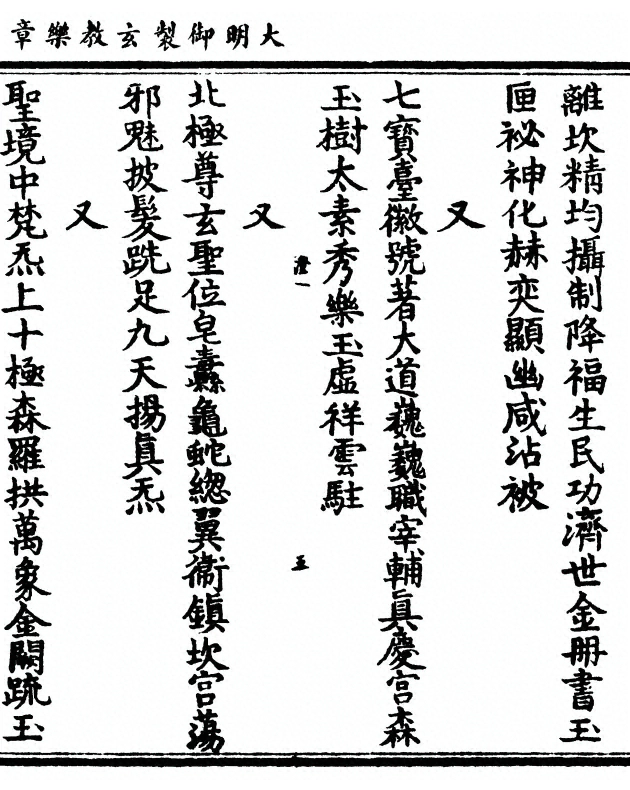 大明御製玄教樂章
離坎精均攝制降福生民功濟世金冊書玉
匣祕神化赫奕顯幽咸沾被
又
七寶臺徽號著大道巍巍職宰輔眞慶宮森
玉樹太素秀樂玉虛祥雲駐
澄一
五
又
北極尊玄聖位皂纛龜蛇總翼衞鎮坎宮蕩
邪魅披髮跣足九天揚眞炁
又
聖境中梵炁上十極森羅拱萬象金闕疏玉